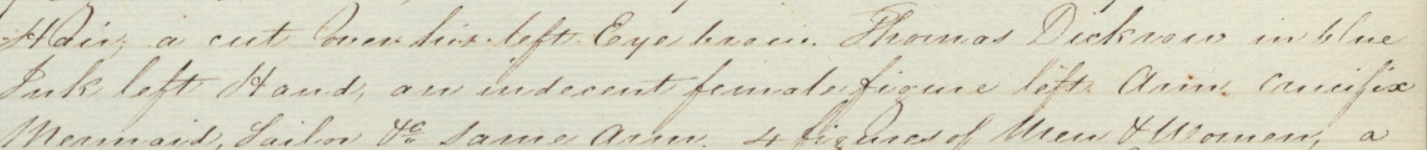 Hair, a cut over his left Eye brow. Thomas Dickson in blue
Ink left Hand, an indecent female figure left Arm. Crucifix
Mermaid, Sailor &c same Arm. 4 figures of Men & Women, a